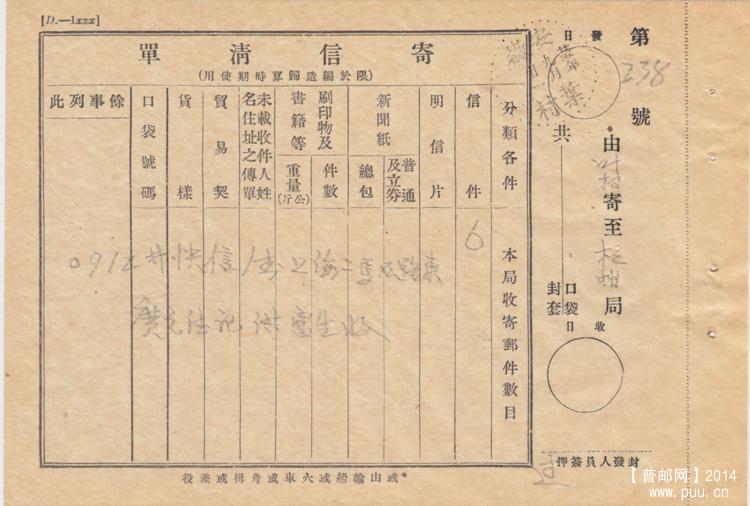 [D.—1xxx]
寄信淸單
(限於編造歸算時期使用)
分類各件
信件
明信片
新聞紙
普通及立券
總包
刷印物及書籍等
件數
重量(公斤)
未載收件人姓名住址之傳單
貿易契
貨樣
口袋號碼
餘事列此
本局收寄郵件數目
6
0912 快信
上海二馬路
收
第238號
*由
村
寄至
局
共
口袋
封套
發日
收日
安徽
葉村
封發人員簽押
*或由輪船或火車或舟楫或差役
【普邮网】2014
www.puu.cn